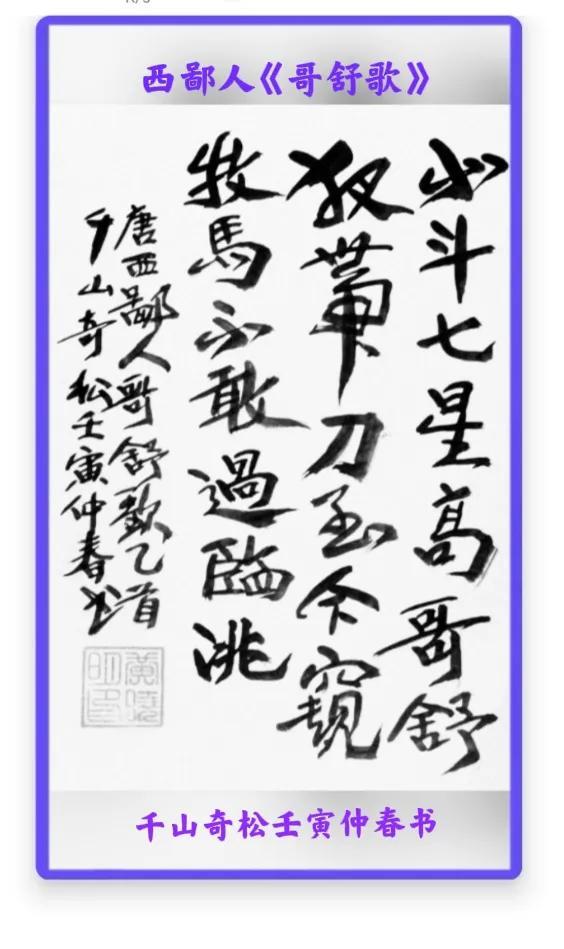 西鄙人《哥舒歌》
北斗七星高哥舒
夜帶刀至今窺
牧馬不敢過臨洮
唐西鄙人哥舒歌乙首
千山奇松壬寅仲春书
千山奇松壬寅仲春书